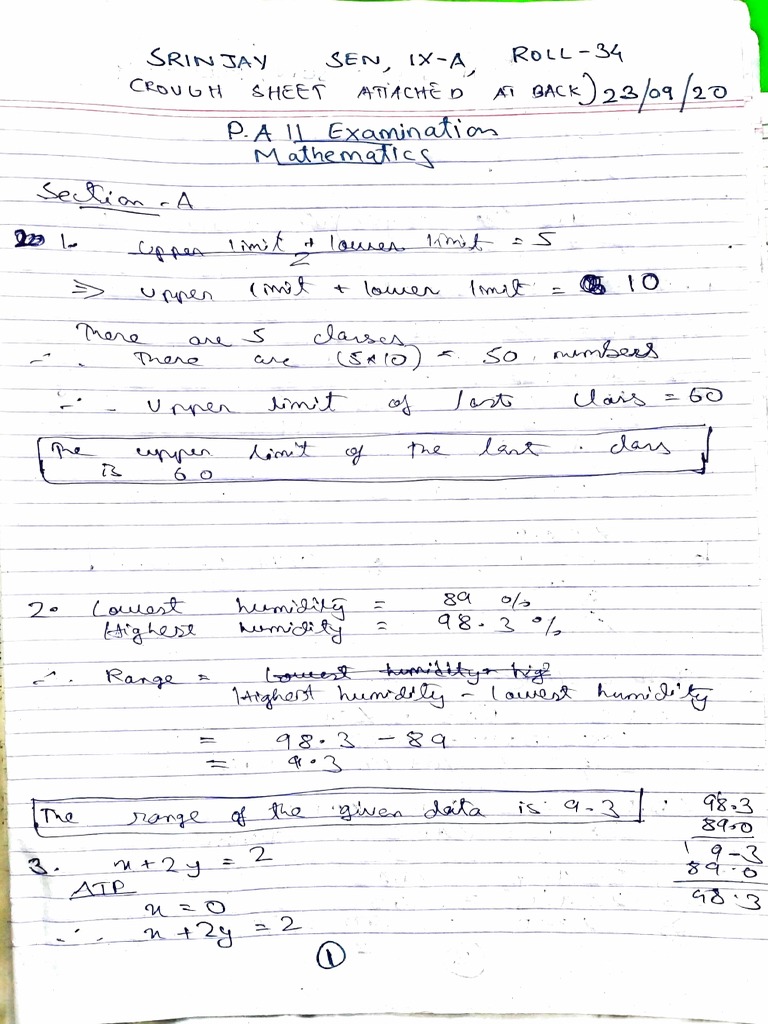 SRINJAY SEN, IX-A, ROLL-34
(ROUGH SHEET ATTACHED AT BACK) 23/09/20
P.A II Examination
Mathematics
Section - A
1. upper limit + lower limit / 2 = 5
⇒ upper limit + lower limit = 10
There are 5 classes
∴ There are (5×10) = 50 numbers
∴ Upper limit of last class = 60
The upper limit of the last class
is 60
2. Lowest humidity = 89 %
Highest humidity = 98.3 %
∴ Range = Lowest humidity + hig
Highest humidity - lowest humidity
= 98.3 - 89
= 9.3
The range of the given data is 9.3
98.3
89.0
9.3
89.0
98.3
3. x + 2y = 2
ATP
x = 0
∴ x + 2y = 2
1